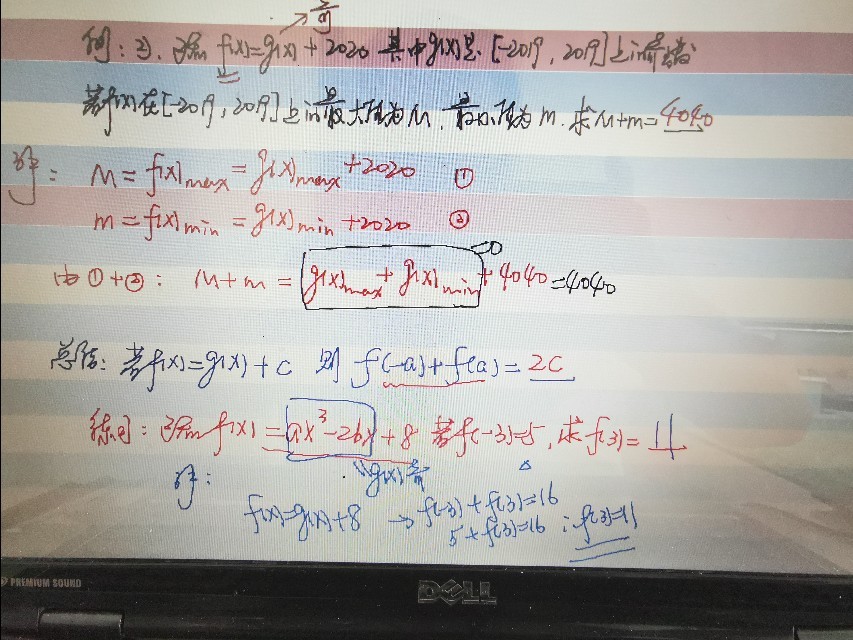 奇
例: 2). 已知 f(x)=g(x)+2020 其中g(x)是[-2019, 2019]上的奇函数
若f(x)在[-2019, 2019]上的最大值为M, 最小值为m. 求M+m=4040
解: M=f(x)max=g(x)max+2020 ①
m=f(x)min=g(x)min+2020 ②
=0
由①+②: M+m=g(x)max+g(x)min+4040=4040
总结: 若f(x)=g(x)+c 则 f(-a)+f(a)=2c
练习: 已知f(x)=ax³-2bx+8 若f(-3)=5, 求f(3)=11
"g(x)奇
解:
f(x)=g(x)+8 → f(-3)+f(3)=16
5+f(3)=16 ∴f(3)=11
PREMIUM SOUND
DELL